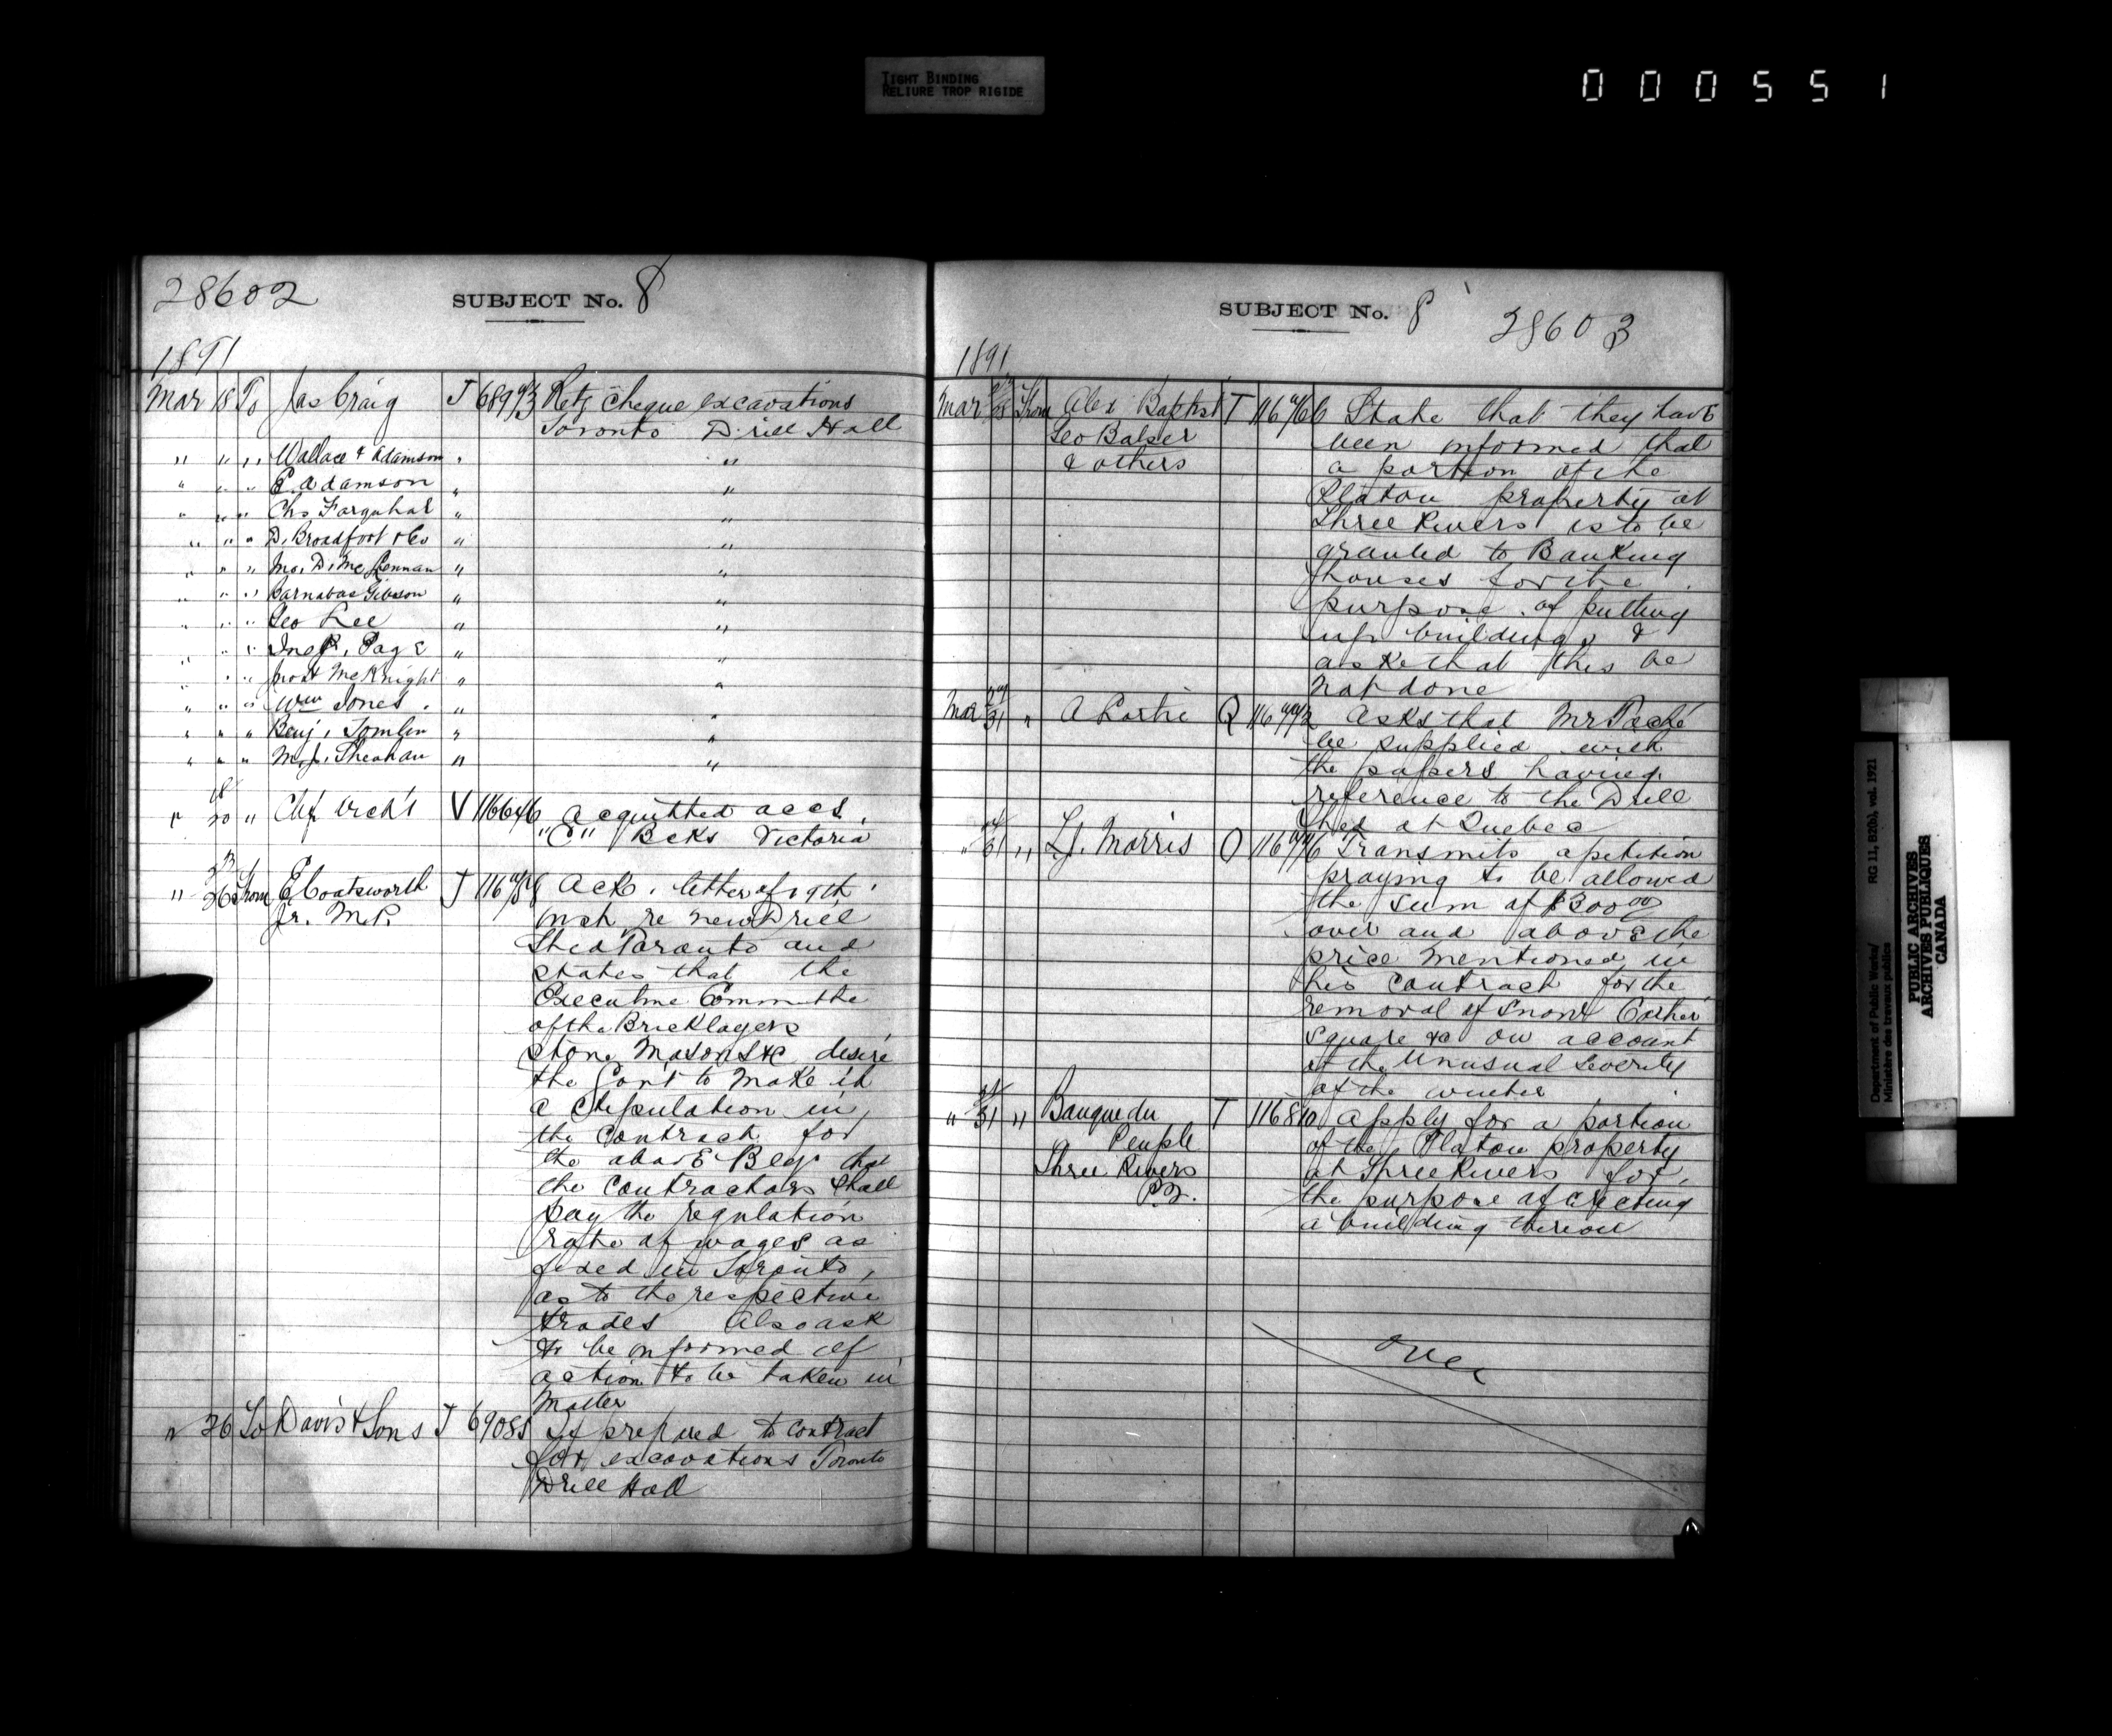 TIGHT BINDING
RELIURE TROP RIGIDE
000551
28602
SUBJECT No. 8
1891
Mar 18 To Jas Craig T Retg cheque excavations
Toronto Drill Hall
" " " Wallace & Adamson " "
" " " E. Adamson " "
" " " Chs Farquhar " "
" " " D. Broadfoot & Co " "
" " " D. McLennan " "
" " " Barnabas Gibson " "
" " " Geo Lee " "
" " " Page " "
" " " McKnight " "
" " " Wm Jones " "
" " " Benj. Tomlin " "
" " " Sheahan " "
" 18/20 " Chf Archt V 116646 Acquitted accs.
"C" Bcks Victoria
" 23/26 From E Coatsworth T Ack. letter of 19th
Jr. M.P. inst re new Drill
Shed Toronto and
states that the
Executive Committee
of the Bricklayers
stone Masons &c desire
the Govt to make it
a stipulation in
the contract for
the above Bldg that
the contractors shall
pay the regulation
rate of wages as
fixed in Toronto,
as to the respective
trades Also ask
to be informed of
action to be taken in
Matter
" 26 To Davis & Sons T 69085 If prepared to contract
for excavations Toronto
Drill Hall
SUBJECT No. 8
28603
1891
Mar From Alex Baptist T State that they have
Geo Balcer been informed that
& others a portion of the
Platon property at
Three Rivers is to be
granted to Banking
houses for the
purpose of putting
up buildings &
ask that this be
not done
Mar 31 " A Q Asks that Mr Taché
be supplied with
the papers having
reference to the Drill
Shed at Quebec
" 31 " L.J. Morris O Transmits a petition
praying to be allowed
the sum of $300 00
over and above the
price mentioned in
his contract for the
removal of snow Cartier
square &c on account
of the unusual severity
of the winter
" 31 " Banque du T 116810 Apply for a portion
Peuple of the Platon property
Three Rivers at Three Rivers for
P.Q. the purpose of erecting
a building thereon
over
Department of Public Works/
Ministère des travaux publics
RG 11, B2(b), vol. 1921
PUBLIC ARCHIVES
ARCHIVES PUBLIQUES
CANADA